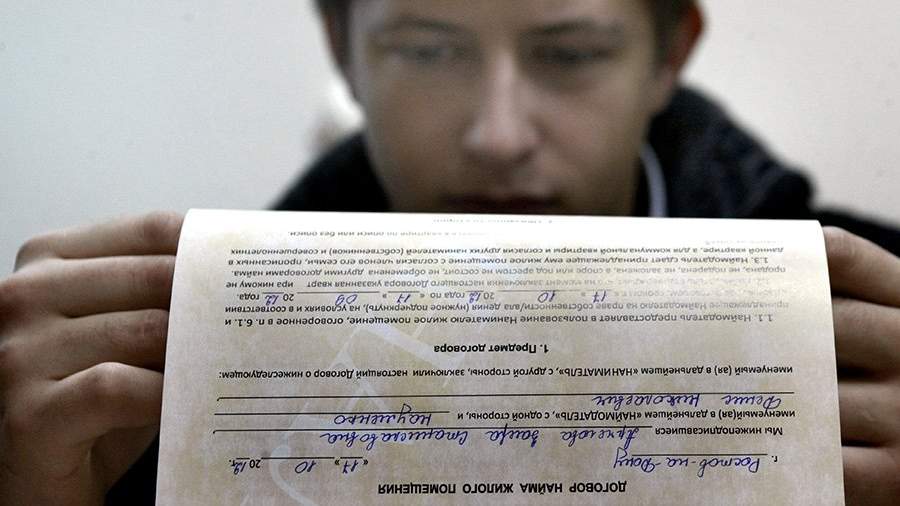 ДОГОВОР НАЙМА ЖИЛОГО ПОМЕЩЕНИЯ
г. Ростов-на-Дону « 17 » 10 2012г.
Мы нижеподписавшиеся Заира Станиславовна
именуемый(ая) в дальнейшем «НАЙМОДАТЕЛЬ», с одной стороны, и Науменко
Николаевич
именуемый (ая) в дальнейшем «НАНИМАТЕЛЬ», с другой стороны, заключили настоящий Договор о нижеследующем:
1. Предмет договора
1.1. Наймодатель предоставляет в пользование Нанимателю жилое помещение, оговоренное в п. 6.1. и
принадлежащее Наймодателю на праве собственности/владения (нужное подчеркнуть), на условиях и в соответствии
« 17 » 10 2012 года по « 17 » 09 20 года.
на момент заключения настоящего Договора указанная кварт ира никому не
продана, не подарена, не заложена, в споре или под арестом не состоит, не обременена другими договорами найма.
1.3. Наймодатель сдает принадлежащее ему жилое помещение с согласия членов его семьи, прописанных в
данной квартире, а для коммунальной квартиры и согласия других нанимателей (собственников) и совершеннолетних
в квартире по описи или без описи.